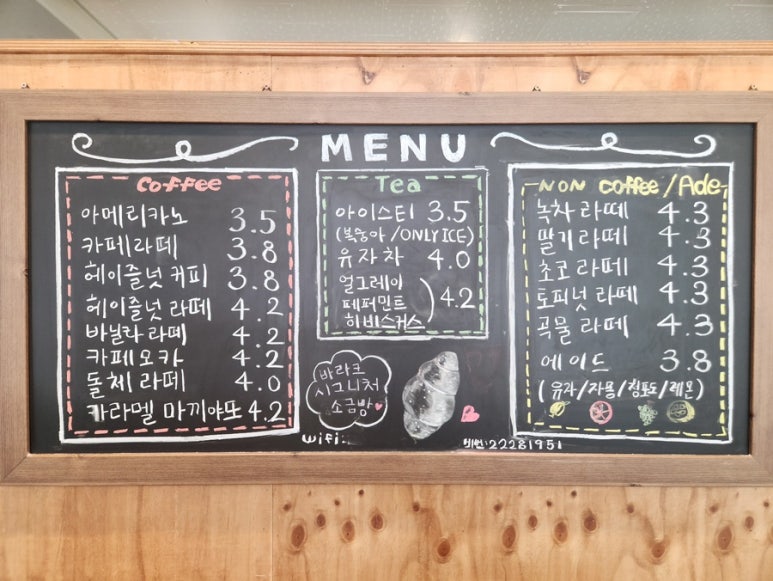 MENU
Coffee
아메리카노 3.5
카페라떼 3.8
헤이즐넛 커피 3.8
헤이즐넛 라떼 4.2
바닐라 라떼 4.2
카페모카 4.2
돌체 라떼 4.0
카라멜 마끼야또 4.2
Tea
아이스티 3.5
(복숭아/ONLY ICE)
유자차 4.0
얼그레이
페퍼민트 ) 4.2
히비스커스
바라크
시그니처
소금빵
wifi:
비번:22281951
NON coffee/Ade
녹차 라떼 4.3
딸기 라떼 4.3
초코 라떼 4.3
토피넛 라떼 4.3
곡물 라떼 4.3
에이드 3.8
(유자/자몽/청포도/레몬)